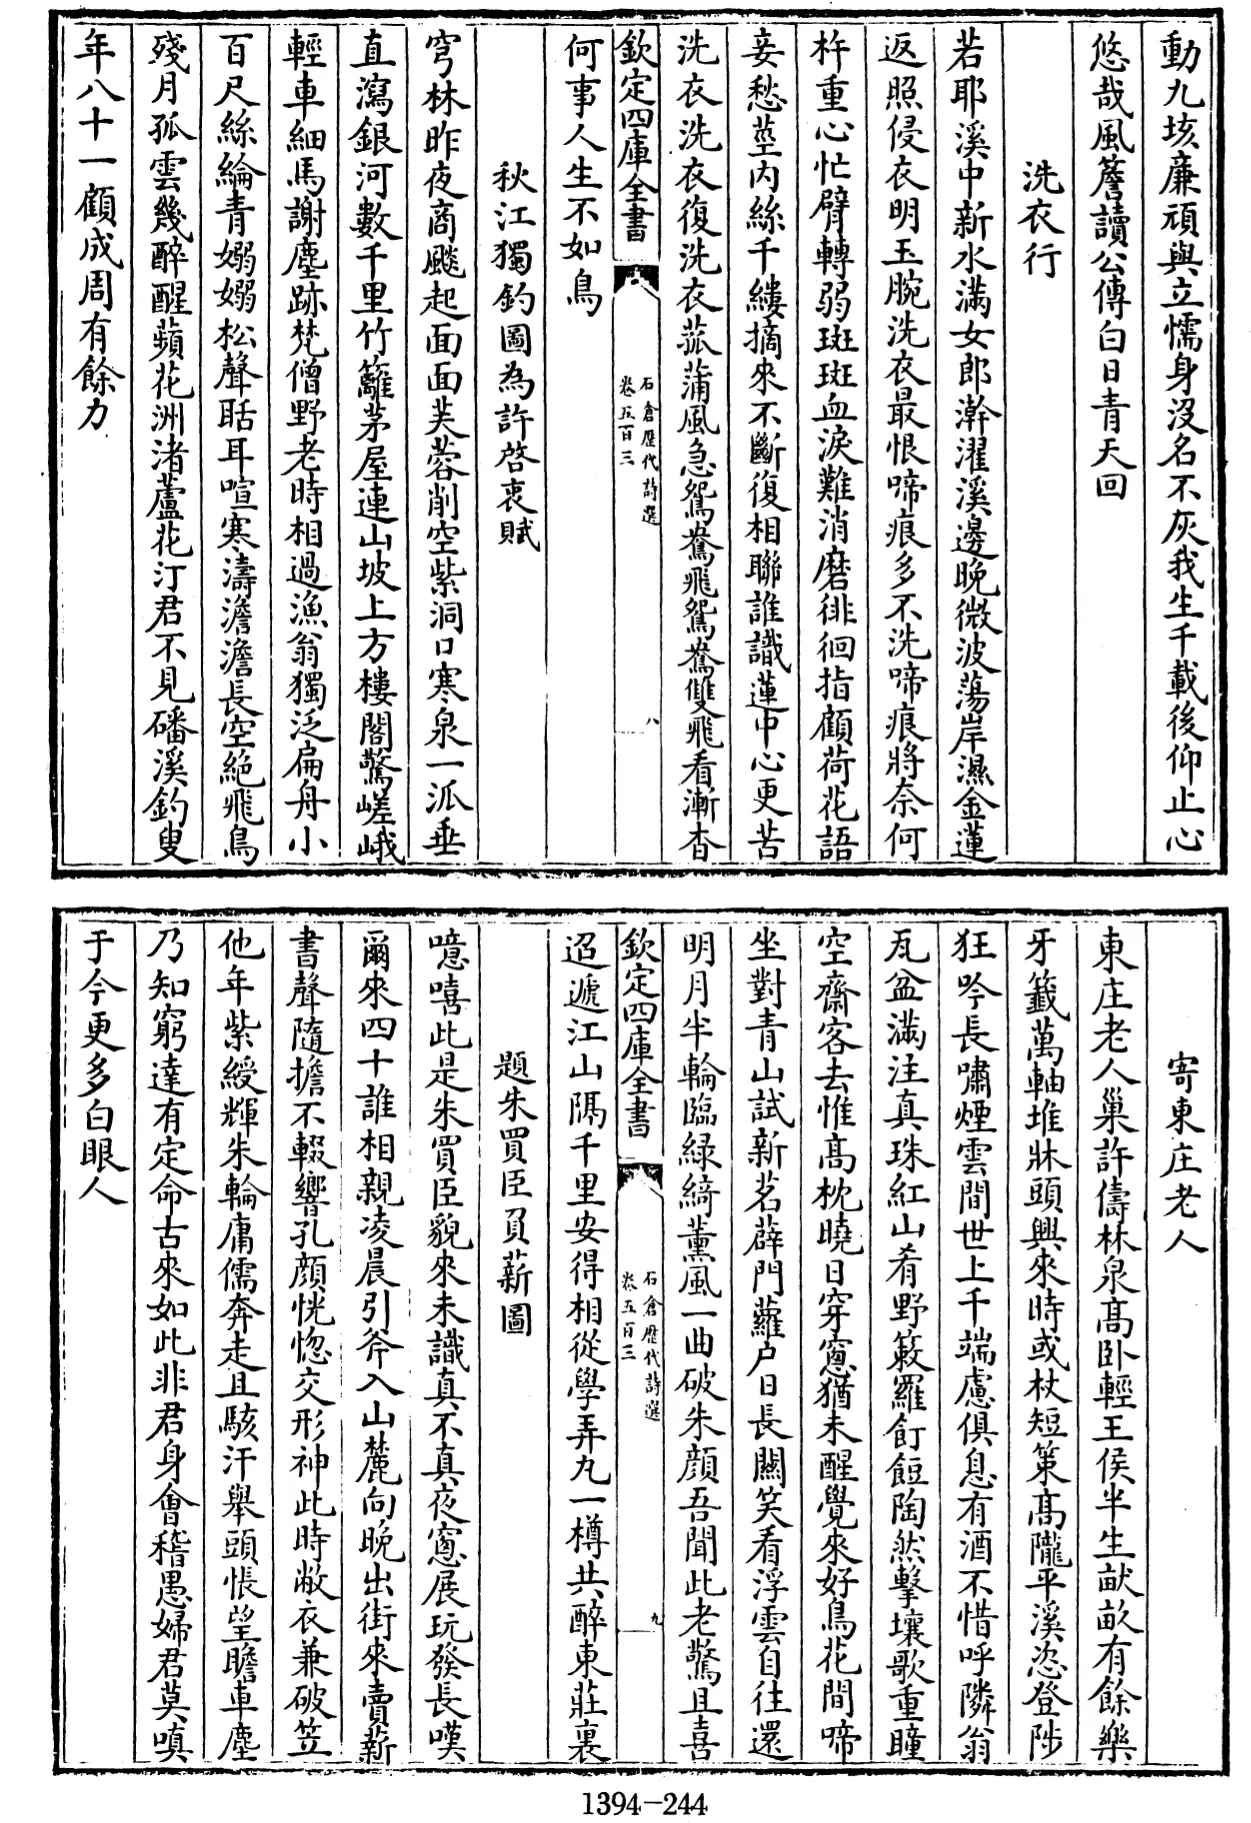 動九垓廉頑與立懦身沒名不灰我生千載後仰止心
悠哉風簷讀公傳白日青天回
洗衣行
若耶溪中新水滿女郎澣濯溪邊晚微波蕩岸濕金蓮
返照侵衣明玉腕洗衣最恨啼痕多不洗啼痕將奈何
杵重心忙臂轉弱斑斑血淚難消磨徘徊指顧荷花語
妾愁莖內絲千縷摘來不斷復相聯誰識蓮中心更苦
洗衣洗衣復洗衣菰蒲風急鴛鴦飛鴛鴦雙飛看漸杳
欽定四庫全書
石倉歷代詩選
卷五百三
八
何事人生不如鳥
秋江獨釣圖為許啓衷賦
穹林昨夜商飈起面面芙蓉削空紫洞口寒泉一派垂
直瀉銀河數千里竹籬茅屋連山坡上方樓閣驚嵯峨
輕車細馬謝塵跡梵僧野老時相過漁翁獨泛扁舟小
百尺絲綸青嫋嫋松聲聒耳喧寒濤澹澹長空絕飛鳥
殘月孤雲幾醉醒蘋花洲渚蘆花汀君不見磻溪釣叟
年八十一顧成周有餘力
寄東庄老人
東庄老人巢許儔林泉髙臥輕王侯半生畎畝有餘樂
牙籤萬軸堆牀頭興來時或杖短策髙隴平溪恣登陟
狂吟長嘯煙雲間世上千端慮俱息有酒不惜呼隣翁
瓦盆滿注真珠紅山肴野蔌羅飣餖陶然擊壤歌重瞳
空齋客去惟髙枕曉日穿窻猶未醒覺來好鳥花間啼
坐對青山試新茗薜門蘿戶日長關笑看浮雲自往還
明月半輪臨綠綺薰風一曲破朱顏吾聞此老驚且喜
欽定四庫全書
石倉歷代詩選
卷五百三
九
迢遞江山隔千里安得相從學弄丸一樽共醉東莊裏
題朱買臣負薪圖
噫嘻此是朱買臣貌來未識真不真夜窻展玩發長嘆
爾來四十誰相親凌晨引斧入山麓向晚出街來賣薪
書聲隨擔不輟響孔顏恍惚交形神此時敝衣兼破笠
他年紫綬輝朱輪庸儒奔走且駭汗舉頭悵望瞻車塵
乃知窮達有定命古來如此非君身會稽愚婦君莫嗔
于今更多白眼人
1394-244